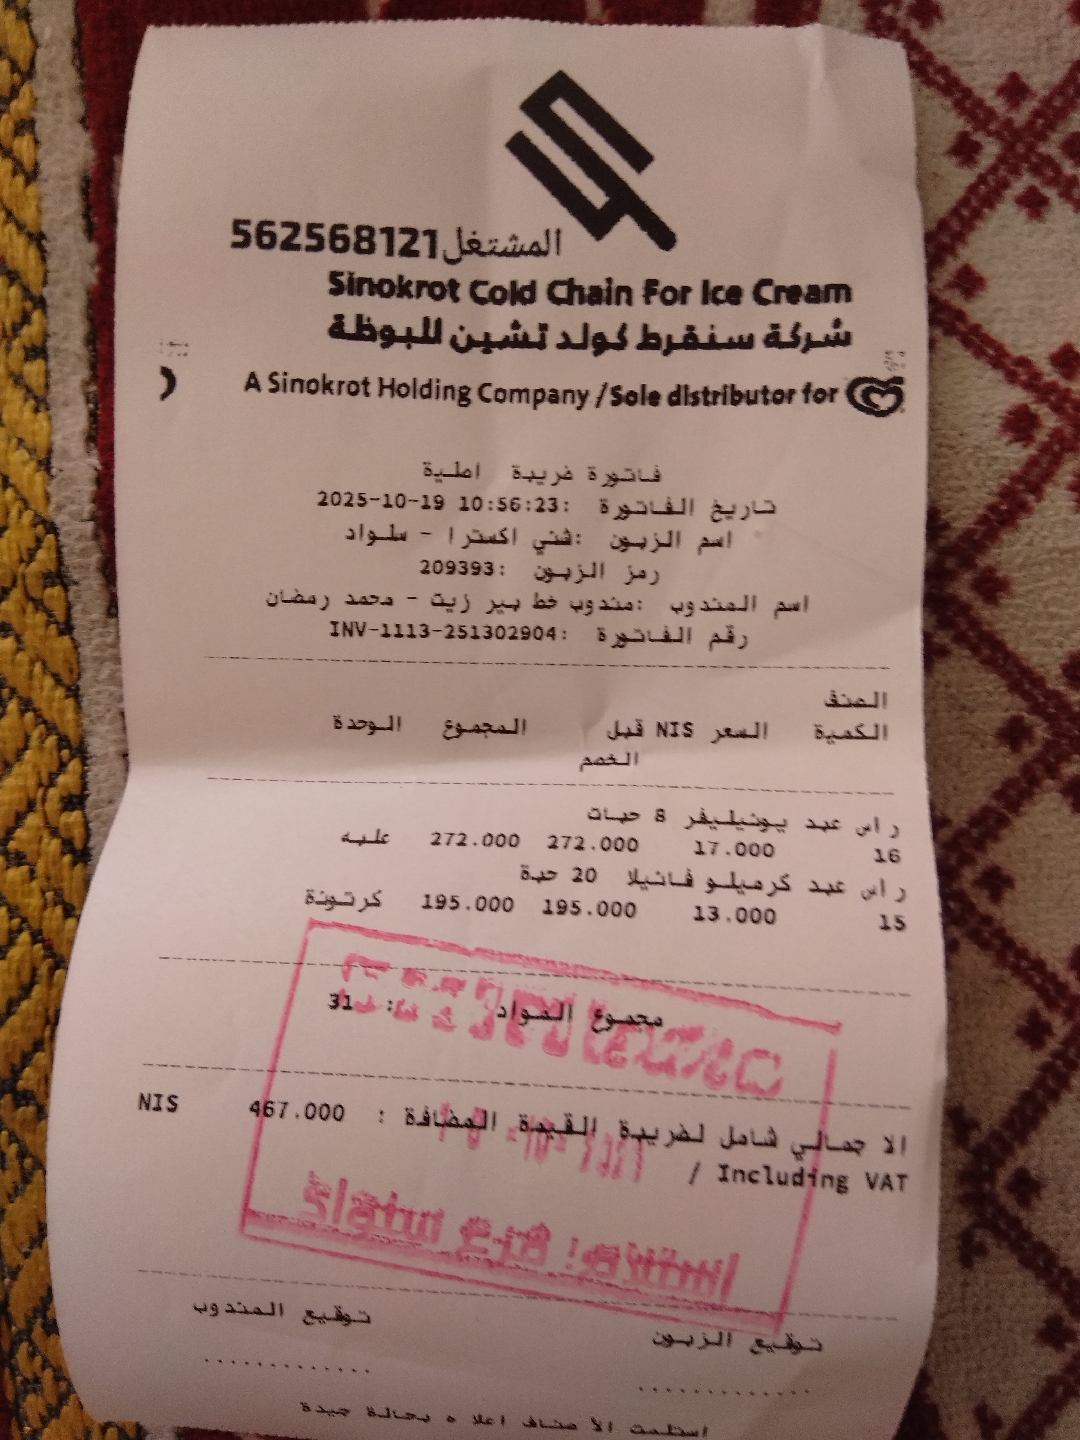 المشتغل562568121
Sinokrot Cold Chain For Ice Cream
شركة سنقرط كولد تشين للبوظة
A Sinokrot Holding Company /Sole distributor for
فاتورة ضريبة اصلية
تاريخ الفاتورة :2025-10-19 10:56:23
اسم الزبون :شني اكسترا - سلواد
رمز الزبون :209393
اسم المندوب :مندوب خط بير زيت - محمد رمضان
رقم الفاتورة :INV-1113-251302904
الصنف
الكمية السعر NIS قبل المجموع الوحدة
الخصم
راس عبد يونيليفر 8 حبات
16 17.000 272.000 272.000 علبه
راس عبد كرميلو فانيلا 20 حبة
15 13.000 195.000 195.000 كرتونة
مجموع المواد : 31
الاجمالي شامل لضريبة القيمة المضافة : 467.000 NIS
/ Including VAT
توقيع المندوب
توقيع الزبون
.............
.............
استلمت الاصناف اعلاه بحالة جيدة